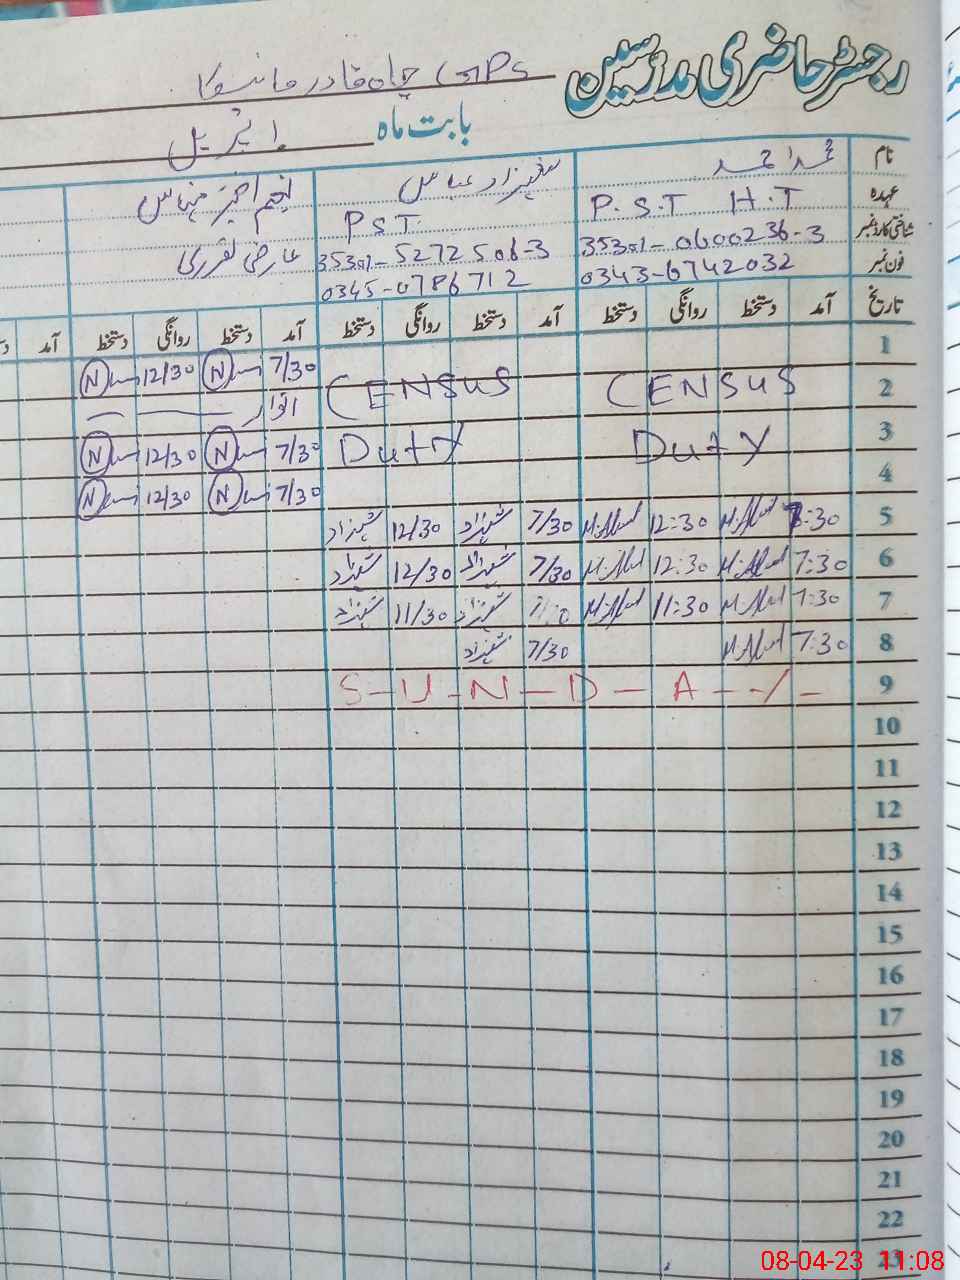 رجسٹر حاضری مدرسین GPS چاہ قادر
بابت ماہ اپریل
نام محمد احمد شہزاد عباس
عہدہ P.S.T H.T PST
شناختی کارڈ نمبر 35301-0600236-3 35301-5272506-3 عارضی تقرری
فون نمبر 0343-6742032 0345-0786712
تاریخ آمد دستخط روانگی دستخط آمد دستخط روانگی دستخط آمد دستخط روانگی دستخط آمد
1 7/30 N 12/30 N
2 CENSUS CENSUS اتوار
3 Duty Duty 7/30 N 12/30 N
4 7/30 N 12/30 N
5 7:30 M.Ahmad 12:30 M.Ahmad 7/30 شہزاد 12/30 شہزاد
6 7:30 M.Ahmad 12:30 M.Ahmad 7/30 شہزاد 12/30 شہزاد
7 7:30 M.Ahmad 11:30 M.Ahmad شہزاد 11/30 شہزاد
8 7:30 M.Ahmad 7/30 شہزاد
9 S-U-N-D-A-Y-
10
11
12
13
14
15
16
17
18
19
20
21
22
23
08-04-23 11:08